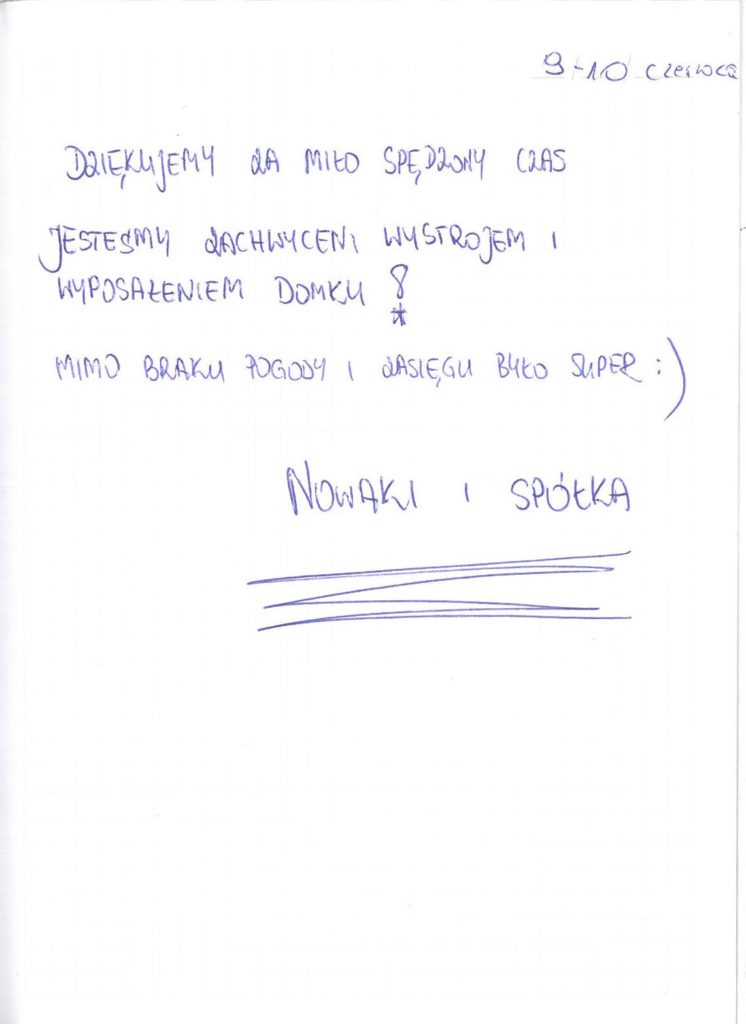 9-10 czerwca
DZIĘKUJEMY ZA MIŁO SPĘDZONY CZAS
JESTEŚMY ZACHWYCENI WYSTROJEM I
WYPOSAŁENIEM DOMKU !
MIMO BRAKU POGODY I ZASIĘGU BYŁO SUPER :)
NOWAKI I SPÓŁKA